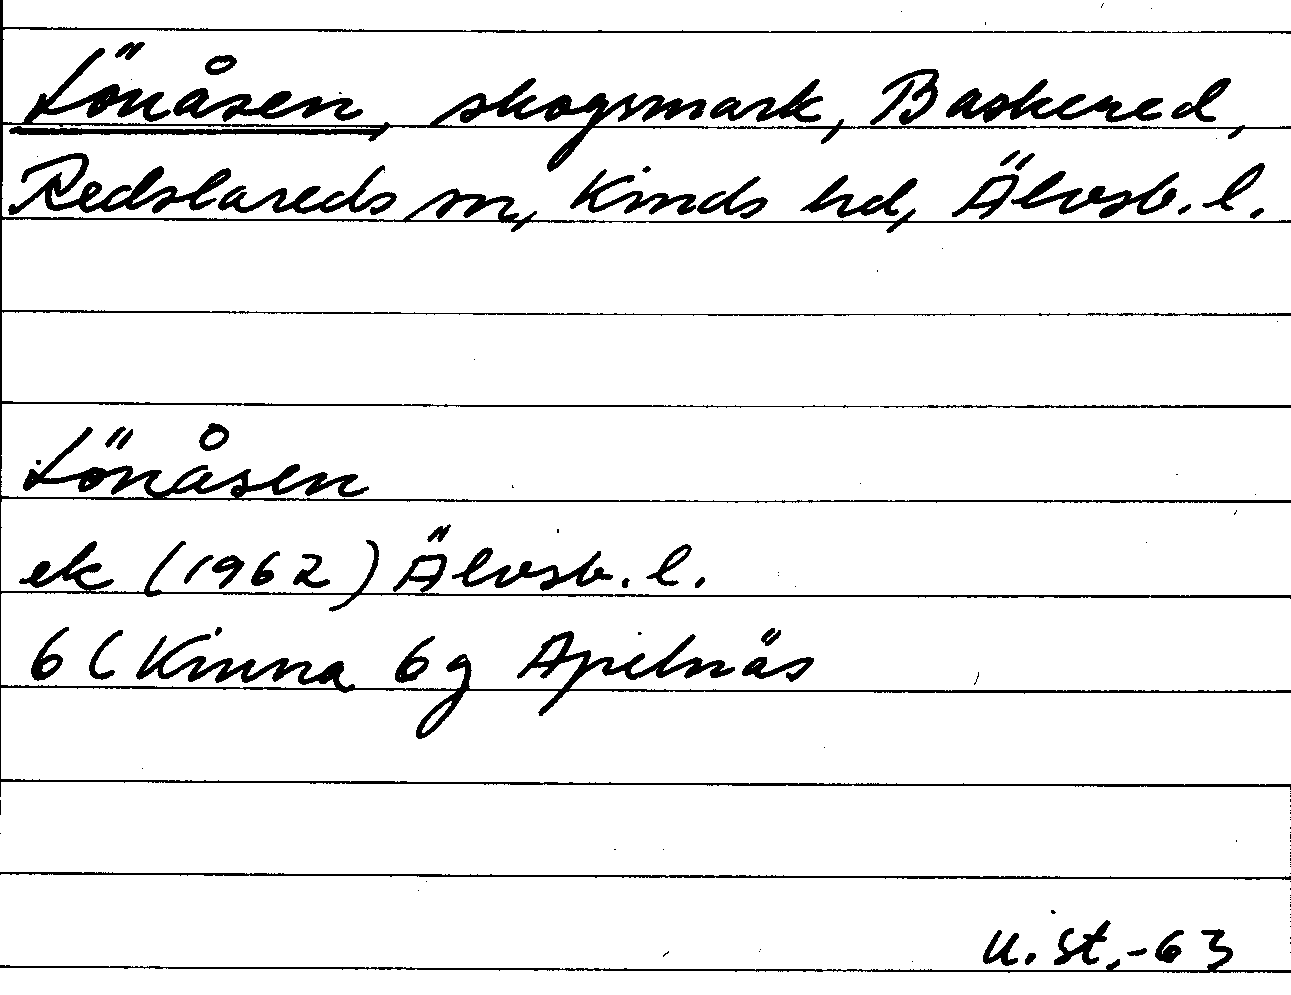 Lönåsen, skogsmark, Baskered,
Redslareds sn, Kinds hd, Älvsb. l.
Lönåsen
ek (1962) Älvsb. l.
6 C Kinna 6g Apelnäs
U. St. -63